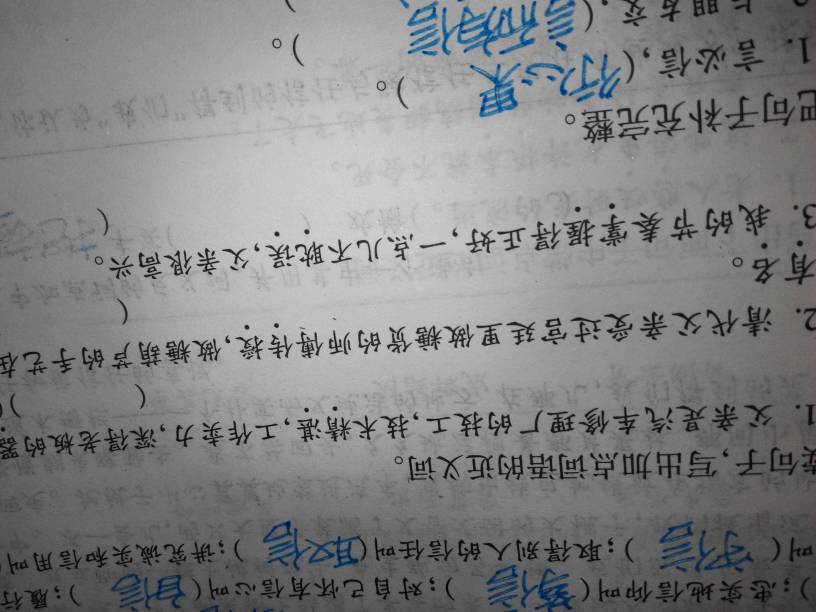 );忠实地信仰叫(笃信);对自己怀有信心叫(自信);履行
叫(守信);取得别人的信任叫(取信);讲究诚实和信用叫(
读句子,写出加点词语的近义词。
1. 父亲是汽车修理厂的技工,技术精湛,工作卖力,深得老板的器
( )(
2. 清代父亲受过宫廷里做糖货的师傅传授,做糖葫芦的手艺在
有名。 (
3. 我的节奏掌握得正好,一点儿不耽误,父亲很高兴。
(
把句子补充完整。
1. 言必信,(行必果)。
2. 与朋友交,(言而有信)。